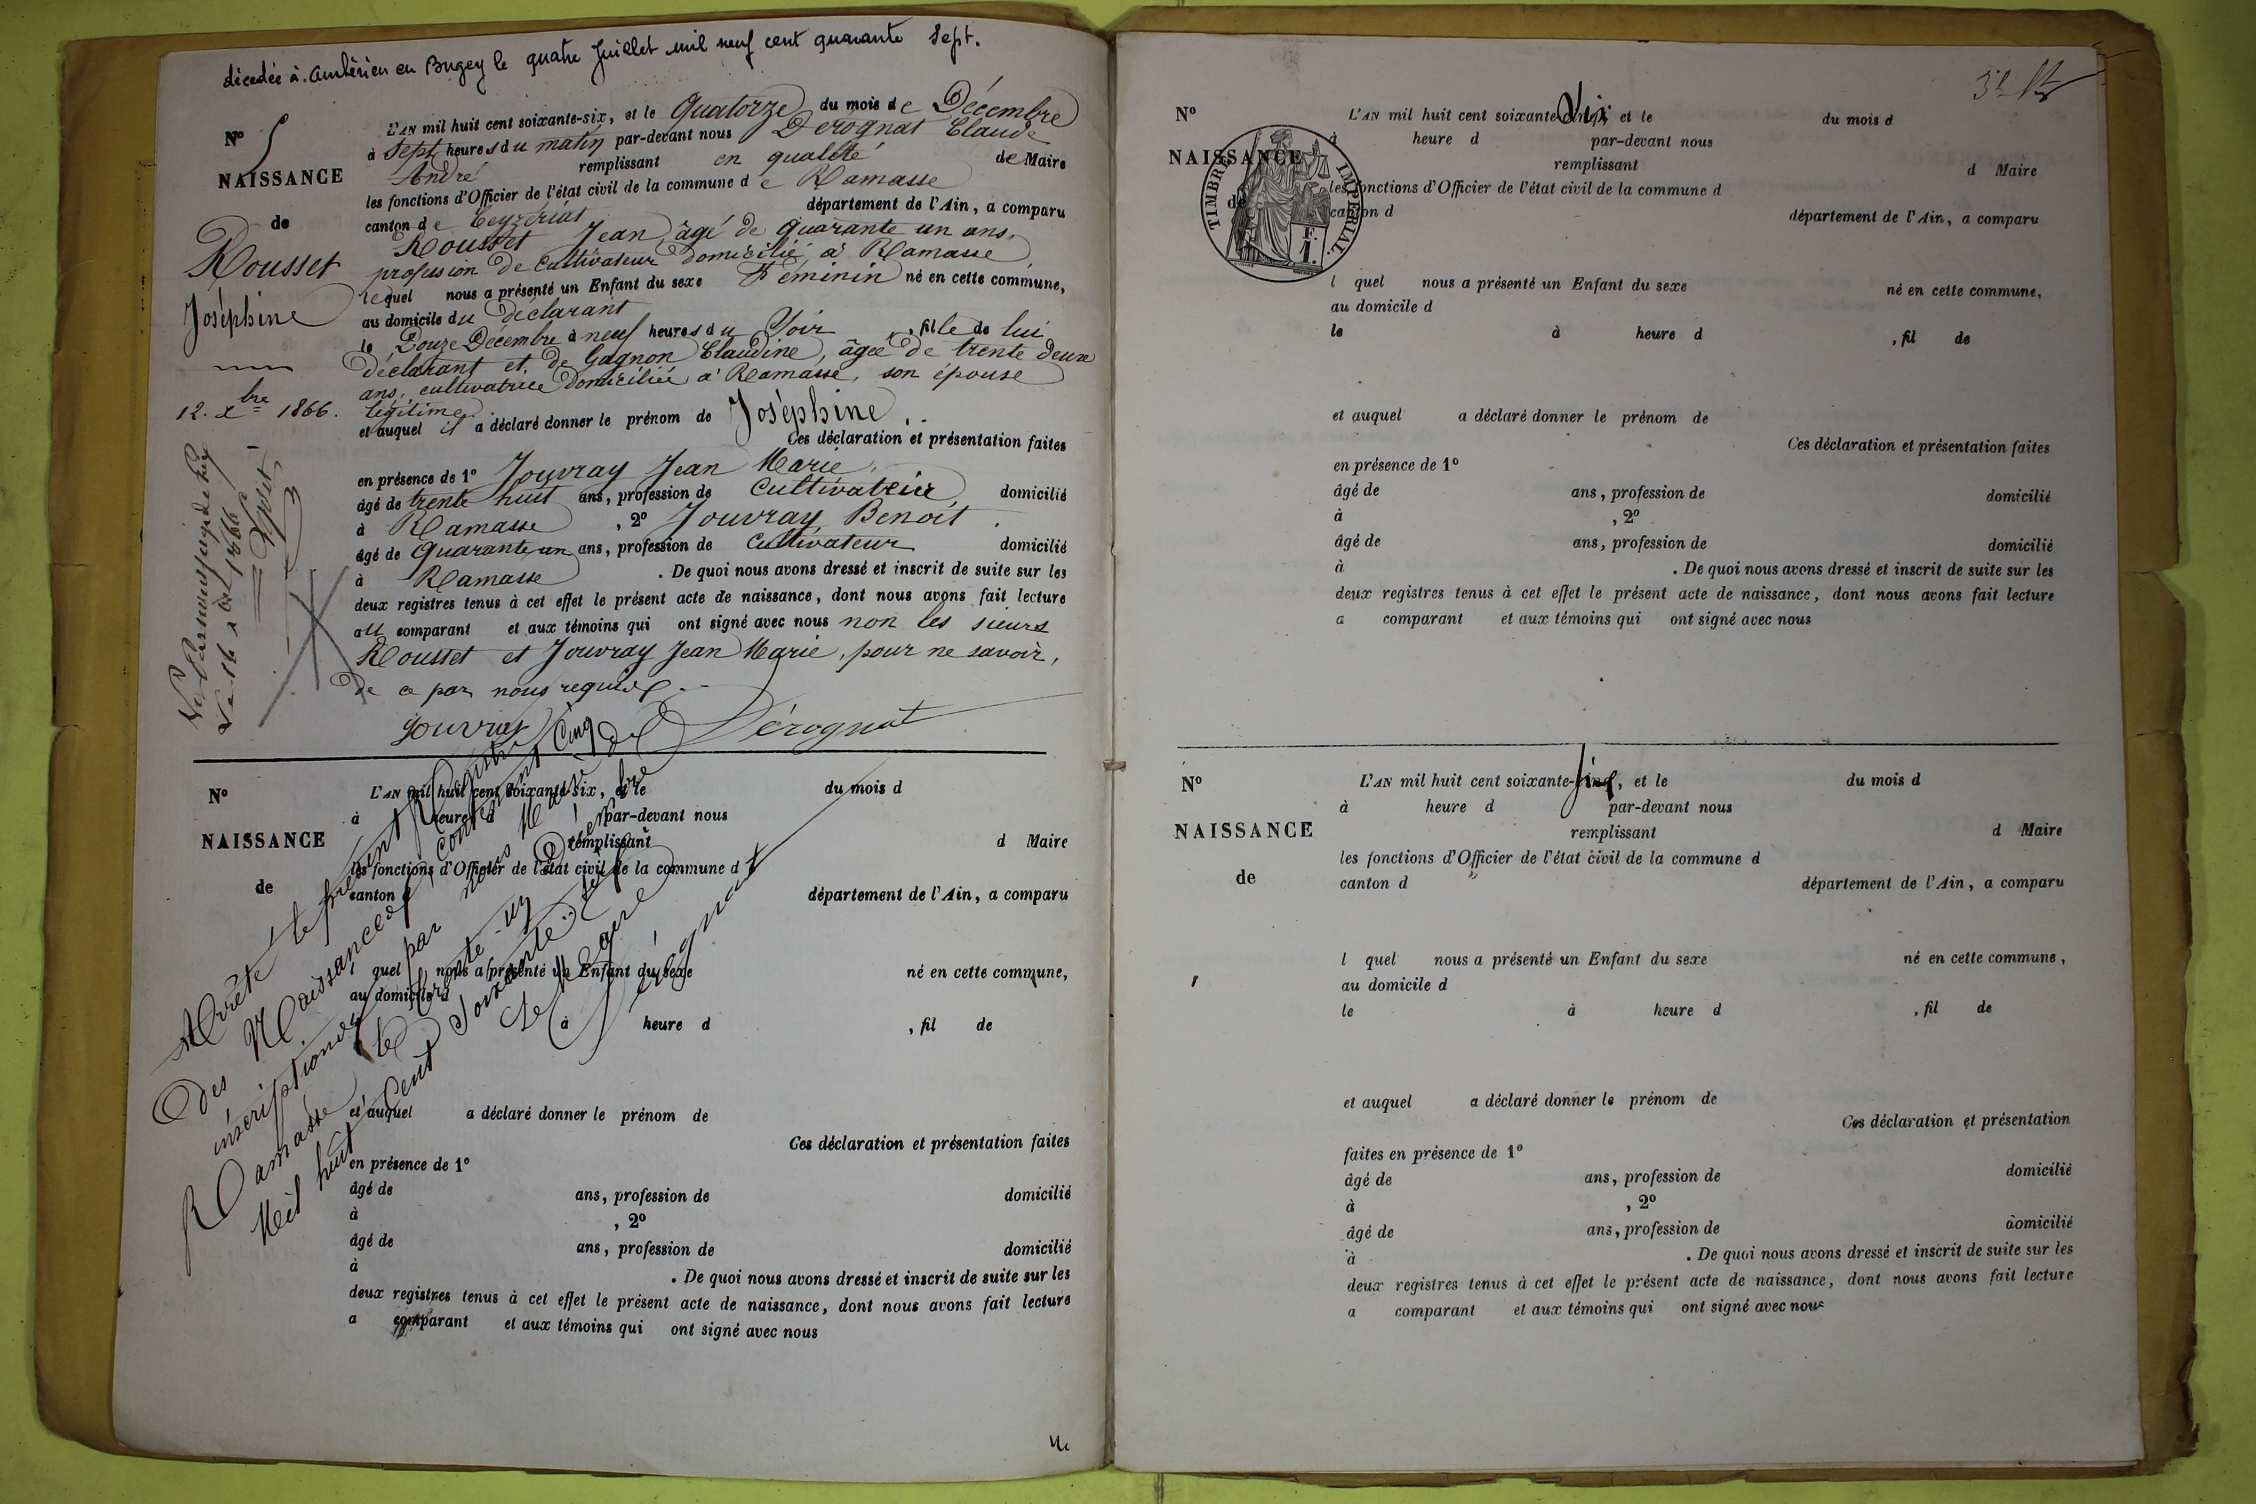 décedée à Ambérieu en Bugey le quatre Juillet mil neuf cent quarante sept.
N° 5
NAISSANCE
de
Rousset
Joséphine
12. xbre 1866.
L'AN mil huit cent soixante-six, et le Quatorze du mois de Décembre
à Sept heures du matin par-devant nous Derognat Claude
André remplissant en qualité de Maire
les fonctions d'Officier de l'état civil de la commune de Ramasse
canton de Ceyzériat département de l'Ain, a comparu
Rousset Jean, âgé de quarante un ans,
profession de Cultivateur domicilié à Ramasse
lequel nous a présenté un Enfant du sexe Féminin né en cette commune,
au domicile du déclarant
le Douze Décembre à neuf heures du Soir, fille de lui
déclarant et de Gagnon Claudine, âgée de trente deux
ans, cultivatrice domiciliée à Ramasse, son épouse
légitime.
et auquel il a déclaré donner le prénom de Joséphine
Ces déclaration et présentation faites
en présence de 1° Jouvray Jean Marie,
âgé de trente huit ans, profession de Cultivateur domicilié
à Ramasse, 2° Jouvray Benoit
âgé de Quarante un ans, profession de Cultivateur domicilié
à Ramasse. De quoi nous avons dressé et inscrit de suite sur les
deux registres tenus à cet effet le présent acte de naissance, dont nous avons fait lecture
au comparant et aux témoins qui ont signé avec nous non les sieurs
Rousset et Jouvray Jean Marie, pour ne savoir,
de ce par nous requis.
Jouvray Dérognat
N°
NAISSANCE
de
L'AN mil huit cent soixante-six, et le du mois d
à heure d par-devant nous
remplissant d Maire
les fonctions d'Officier de l'état civil de la commune d
canton d département de l'Ain, a comparu
l quel nous a présenté un Enfant du sexe né en cette commune,
au domicile d
à heure d , fil de
et auquel a déclaré donner le prénom de
Ces déclaration et présentation faites
en présence de 1°
âgé de ans, profession de domicilié
à , 2°
âgé de ans, profession de domicilié
à . De quoi nous avons dressé et inscrit de suite sur les
deux registres tenus à cet effet le présent acte de naissance, dont nous avons fait lecture
a comparant et aux témoins qui ont signé avec nous
Arrêté le présent Registre
des Naissances, contenant Cinq
inscriptions par nous Maire de
Ramasse le trente-un Décembre
Mil huit Cent Soixante-six
Le Maire
Dérognat
N°
NAISSANCE
de
TIMBRE IMPÉRIAL
L'AN mil huit cent soixante Six et le du mois d
à heure d par-devant nous
remplissant d Maire
les fonctions d'Officier de l'état civil de la commune d
canton d département de l'Ain, a comparu
l quel nous a présenté un Enfant du sexe né en cette commune,
au domicile d
le à heure d , fil de
et auquel a déclaré donner le prénom de
Ces déclaration et présentation faites
en présence de 1°
âgé de ans, profession de domicilié
à , 2°
âgé de ans, profession de domicilié
à . De quoi nous avons dressé et inscrit de suite sur les
deux registres tenus à cet effet le présent acte de naissance, dont nous avons fait lecture
a comparant et aux témoins qui ont signé avec nous
N°
NAISSANCE
de
L'AN mil huit cent soixante-, et le du mois d
à heure d par-devant nous
remplissant d Maire
les fonctions d'Officier de l'état civil de la commune d
canton d département de l'Ain, a comparu
l quel nous a présenté un Enfant du sexe né en cette commune,
au domicile d
le à heure d , fil de
et auquel a déclaré donner le prénom de
Ces déclaration et présentation
faites en présence de 1°
âgé de ans, profession de domicilié
à , 2°
âgé de ans, profession de domicilié
à . De quoi nous avons dressé et inscrit de suite sur les
deux registres tenus à cet effet le présent acte de naissance, dont nous avons fait lecture
a comparant et aux témoins qui ont signé avec nous